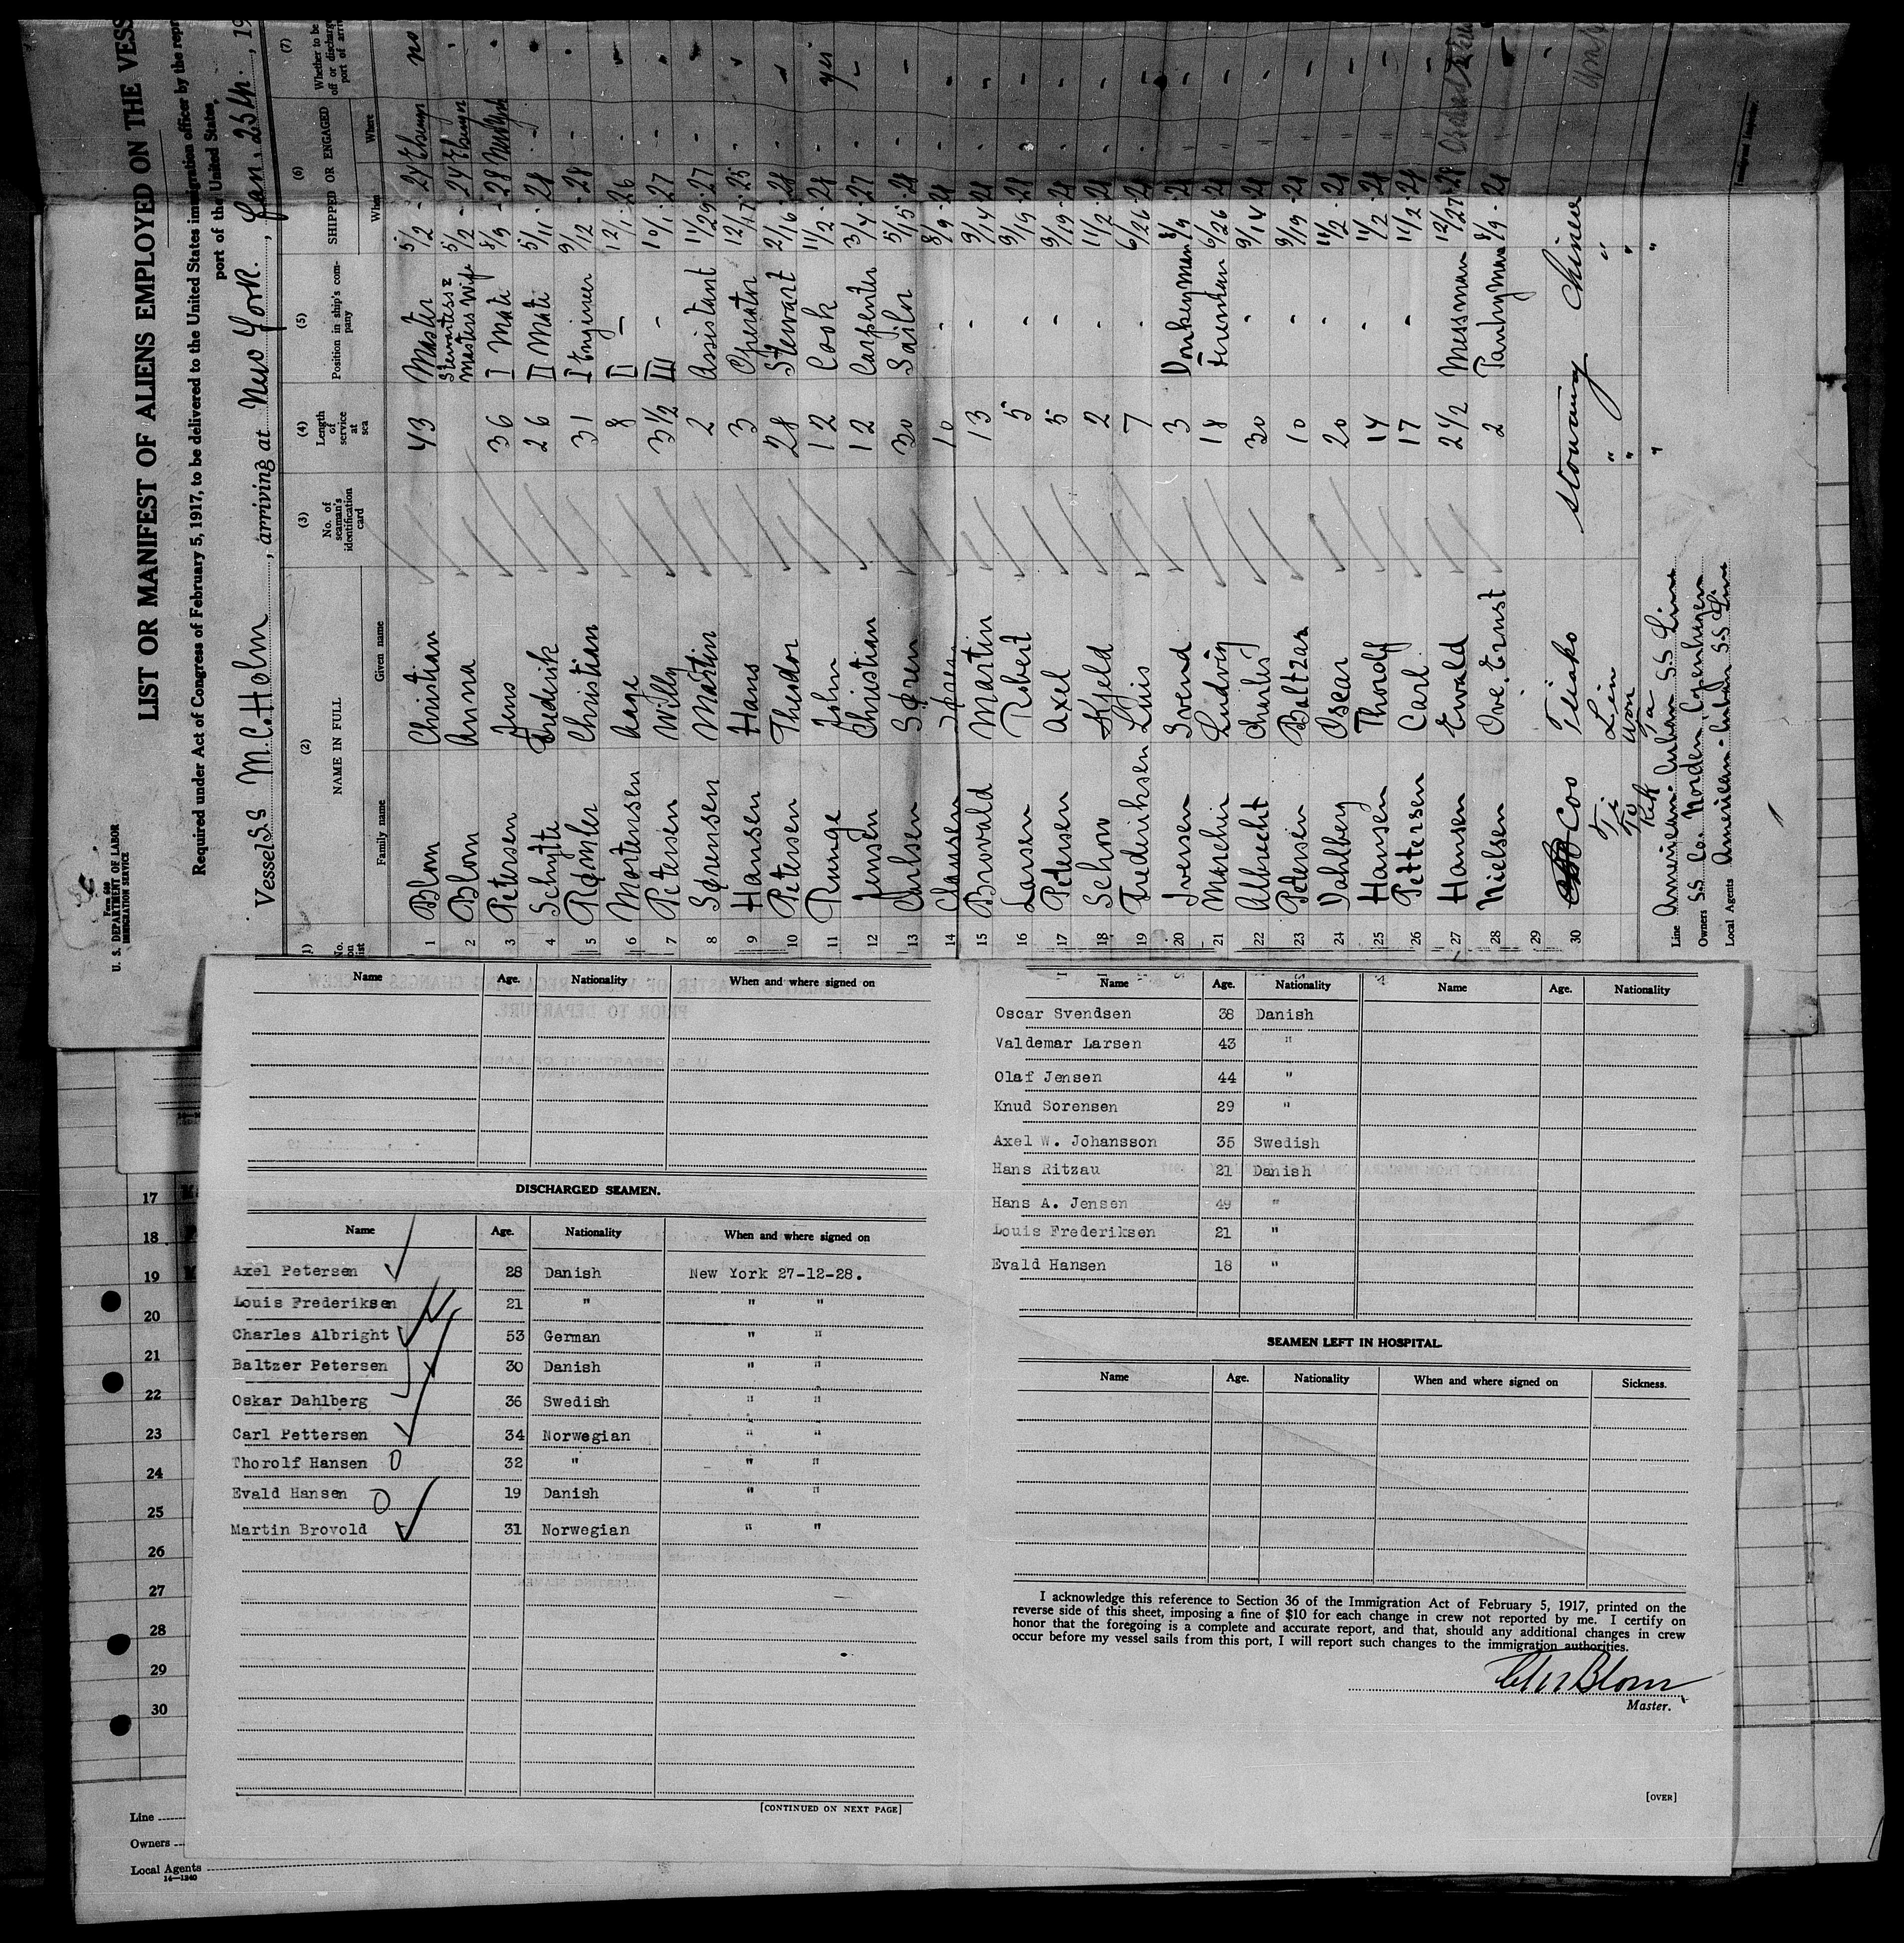 Form 680
U. S. DEPARTMENT OF LABOR
IMMIGRATION SERVICE
LIST OR MANIFEST OF ALIENS EMPLOYED ON THE VESS
Required under Act of Congress of February 5, 1917, to be delivered to the United States immigration officer by the repr
port of the United States,
Vessel SS M.C. Holm, arriving at New York., Jan. 25th., 19
(2) (3) (4) (5) (6) (7)
NAME IN FULL
No. of seaman's identification card
Length of service at sea
Position in ship's company
SHIPPED OR ENGAGED
Family name Given name When Where
1 Blom Christian 43 Master 5/2 - 24 no
2 Blom Anna Stewardess & Masters Wife 5/2 - 24
3 Petersen Jens 36 I Mate 8/9 - 28
4 Schytte Frederik 26 II Mate 5/11 - 28
5 Rømler Christian 31 I Engineer 9/12 - 28
6 Mortensen Aage 8 II - 12/1 - 26
7 Petersen Willy 3 1/2 III - 10/1 - 27
8 Sørensen Martin 2 Assistant 11/29 - 27
9 Hansen Hans 3 Operator 12/17 - 25
10 Petersen Theodor 28 Stewart 2/16 - 28
11 Runge John 12 Cook 11/2 - 28 yes
12 Jensen Christian 12 Carpenter 3/4 - 27
13 Carlsen Søren 30 Sailor 5/15 - 28
14 Clausen 10 - 8/9 - 28
15 Brovold Martin 13 - 9/14 - 28
16 Larsen Robert 5 - 9/19 - 28
17 Petersen Axel 5 - 9/19 - 28
18 Schow Kjeld 2 - 11/2 - 28
19 Frederiksen Luis 7 - 6/26 - 28
20 Iversen Svend 3 Donkeyman 8/9 - 28
21 Maschin Ludvig 18 Fireman 6/26 - 28
22 Albrecht Charles 30 - 9/14 - 28
23 Petersen Baltzar 10 - 9/19 - 28
24 Dahlberg Oscar 20 - 11/2 - 28
25 Hansen Thorolf 14 - 11/2 - 28
26 Pettersen Carl 17 - 11/2 - 28
27 Hansen Ewald 2 1/2 Messman 12/27 - 28
28 Nielsen Ove. Ernst 2 Pantryman 8/9 - 28
29
30 Coo Teiako Stowaway Chinese
Ti Lin " "
To Won " "
Kik Ta " "
Line American-Cuban S.S. Line
Owners SS Co. Norden, Copenhagen
Local Agents American-Cuban S.S. Line
Name Age. Nationality When and where signed on
DISCHARGED SEAMEN.
Name Age. Nationality When and where signed on
Axel Petersen 28 Danish New York 27-12-28.
Louis Frederiksen 21 " " "
Charles Albright 53 German " "
Baltzer Petersen 30 Danish " "
Oskar Dahlberg 36 Swedish " "
Carl Pettersen 34 Norwegian " "
Thorolf Hansen 0 32 " " "
Evald Hansen 0 19 Danish " "
Martin Brovold 31 Norwegian " "
[CONTINUED ON NEXT PAGE]
Name Age. Nationality Name Age. Nationality
Oscar Svendsen 38 Danish
Valdemar Larsen 43 "
Olaf Jensen 44 "
Knud Sorensen 29 "
Axel W. Johansson 35 Swedish
Hans Ritzau 21 Danish
Hans A. Jensen 49 "
Louis Frederiksen 21 "
Evald Hansen 18 "
SEAMEN LEFT IN HOSPITAL.
Name Age. Nationality When and where signed on Sickness.
I acknowledge this reference to Section 36 of the Immigration Act of February 5, 1917, printed on the
reverse side of this sheet, imposing a fine of $10 for each change in crew not reported by me. I certify on
honor that the foregoing is a complete and accurate report, and that, should any additional changes in crew
occur before my vessel sails from this port, I will report such changes to the immigration authorities.
Chr Blom
Master.
[OVER]
17
18
19
20
21
22
23
24
25
26
27
28
29
30
Line
Owners
Local Agents
14—1240